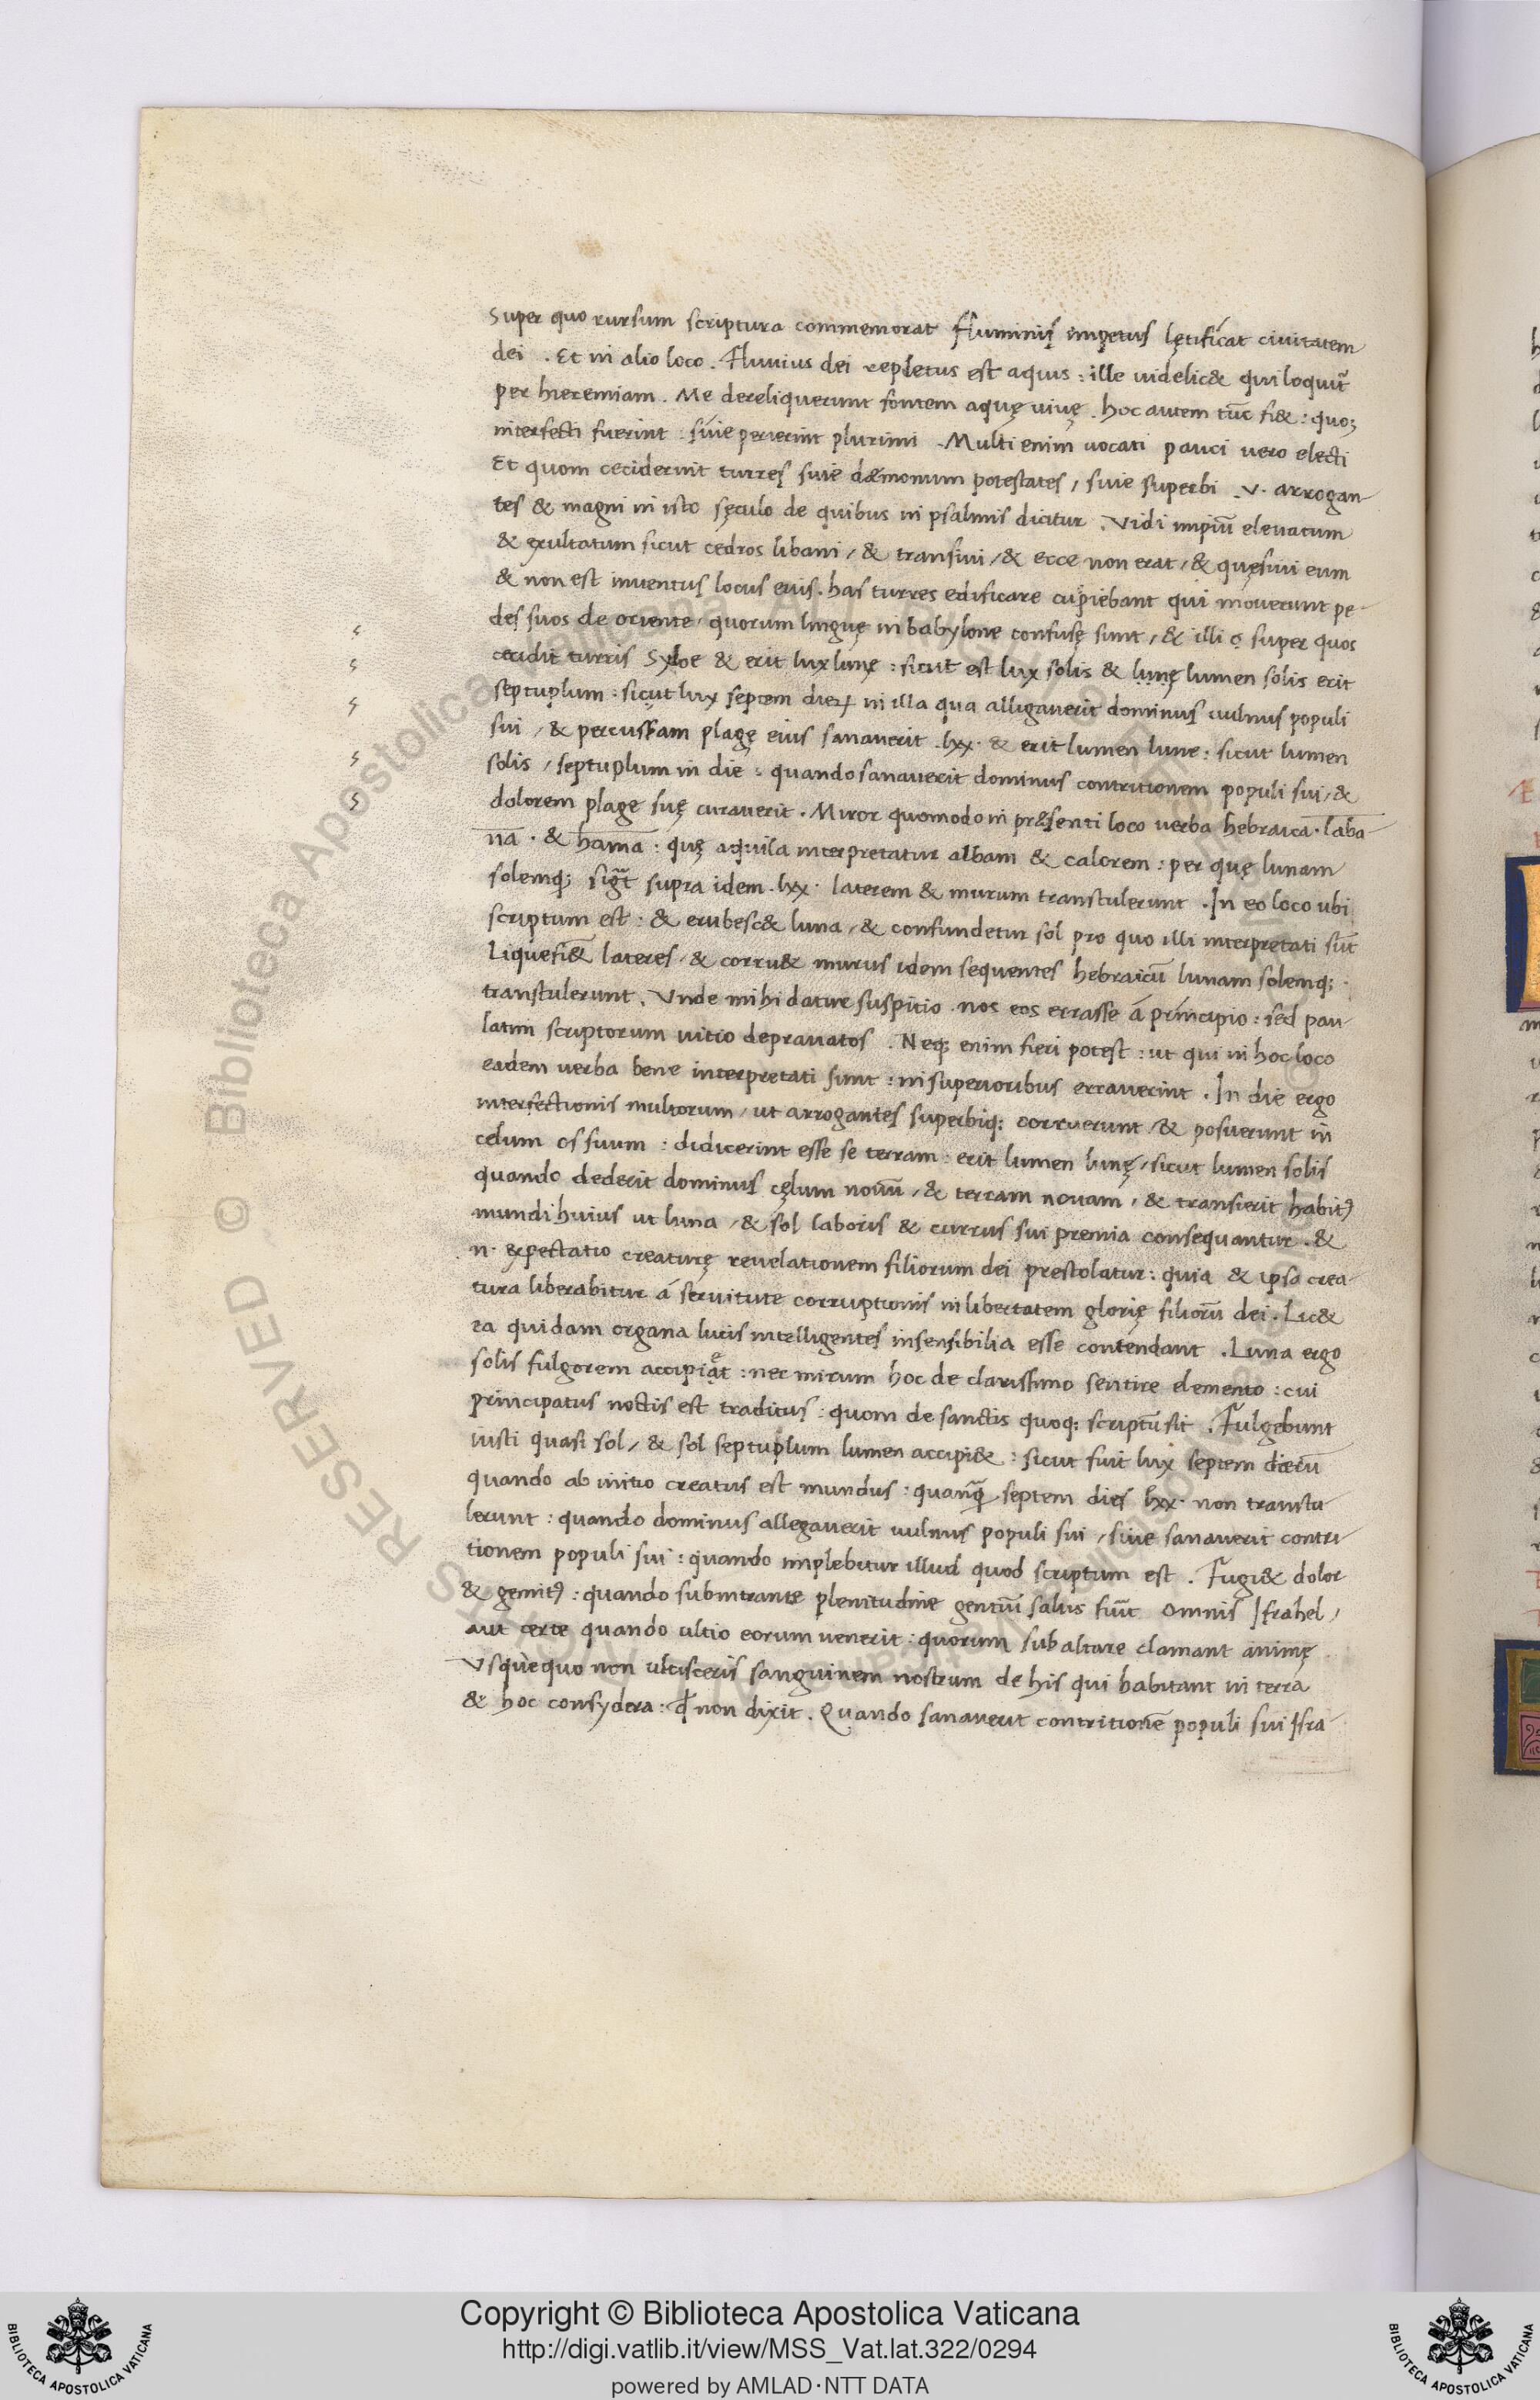 Super quo rursum scriptura commemorat fluminis impetus lętificat ciuitatem
dei . Et in alio loco . Fluuius dei repletus est aquis : ille uidelic& qui loquit̃
per hieremiam . Me dereliquerunt fontem aquę uiuę . hoc autem tūc fi& : quoꝫ
interfecti fuerint : siue perierint plurimi . Multi enim uocati pauci uero electi
Et quom ceciderint turres siue dæmonum potestates / siue superbi .v. arrogan-
tes & magni in isto sęculo de quibus in psalmis dicitur . Vidi impiū eleuatum
& exultatum sicut cedros libani / & transiui / & ecce non erat / & quęsiui eum
& non est inuentus locus eius . has turres edificare cupiebant qui mouerunt pe-
des suos de oriente / quorum linguę in babylone confusę sunt / & illi super quos
cecidit turris Syloe & erit lux lunę : sicut est lux solis & lunę lumen solis erit
septuplum : sicut lux septem dieꝝ in illa qua alligauerit dominus uulnus populi
sui / & percussam plagę eius sanauerit . lxx . & erit lumen lune : sicut lumen
solis / septuplum in die : quando sanauerit dominus contritionem populi sui / &
dolorem plage suę curauerit . Miror quomodo in præsenti loco uerba hebraica . laba-
na . & hama : quę aquila interpretatur albam & calorem : per quę lunam
solemq; sigt̃ supra idem . lxx . laterem & murum transtulerunt . In eo loco ubi
scriptum est . & erubesc& luna / & confundetur sol pro quo illi interpretati sūt
Liquefi& lateres / & corru& murus idem sequentes hebraicū lunam solemq; .
transtulerunt . Vnde mihi datur suspitio . nos eos errasse á principio : sed pau-
latim scriptorum uitio deprauatos . Neq; enim fieri potest : ut qui in hoc loco
eadem uerba bene interpretati sunt : in superioribus errauerint . In die ergo
interfectionis multorum / ut arrogantes superbiq; corruerunt / & posuerunt in
celum os suum : didicerint esse se terram : erit lumen lunę / sicut lumen solis
quando dederit dominus cęlum nouū / & terram nouam / & transierit habitꝰ
mundi huius ut luna / & sol laboris & currus sui premia consequantur . &
n . expectatio creaturę reuelationem filiorum dei prestolatur : quia & ipsa crea-
tura liberabitur á seruitute corruptionis in libertatem glorię filiorū dei . Lic&
ra quidam organa lucis intelligentes insensibilia esse contendant . Luna ergo
solis fulgorem accipiąet : nec mirum hoc de clarissimo sentire elemento : cui
principatus noctis est traditus : quom de sanctis quoq; scriptū sit . Fulgebunt
iusti quasi sol / & sol septuplum lumen accipi& : sicut fuit lux septem dierū
quando ab initio creatus est mundus : quanq̃ septem dies lxx . non transtu-
lerunt : quando dominus allegauerit uulnus populi sui / siue sanauerit contri-
tionem populi sui : quando implebitur illud quod scriptum est . Fugi& dolor
& gemitꝰ : quando subintrante plenitudine gentiū saluus fuit̃ omnis Israhel /
aut certe quando ultio eorum uenerit : quorum sub altare clamant animę
Vsquequo non ulcisceris sanguinem nostrum de his qui habitant in terra
& hoc consydera : qd̃ non dixit . Quando sanauerit contritionē populi sui Isra-
Copyright © Biblioteca Apostolica Vaticana
http://digi.vatlib.it/view/MSS_Vat.lat.322/0294
powered by AMLAD·NTT DATA
BIBLIOTECA APOSTOLICA VATICANA
BIBLIOTECA APOSTOLICA VATICANA